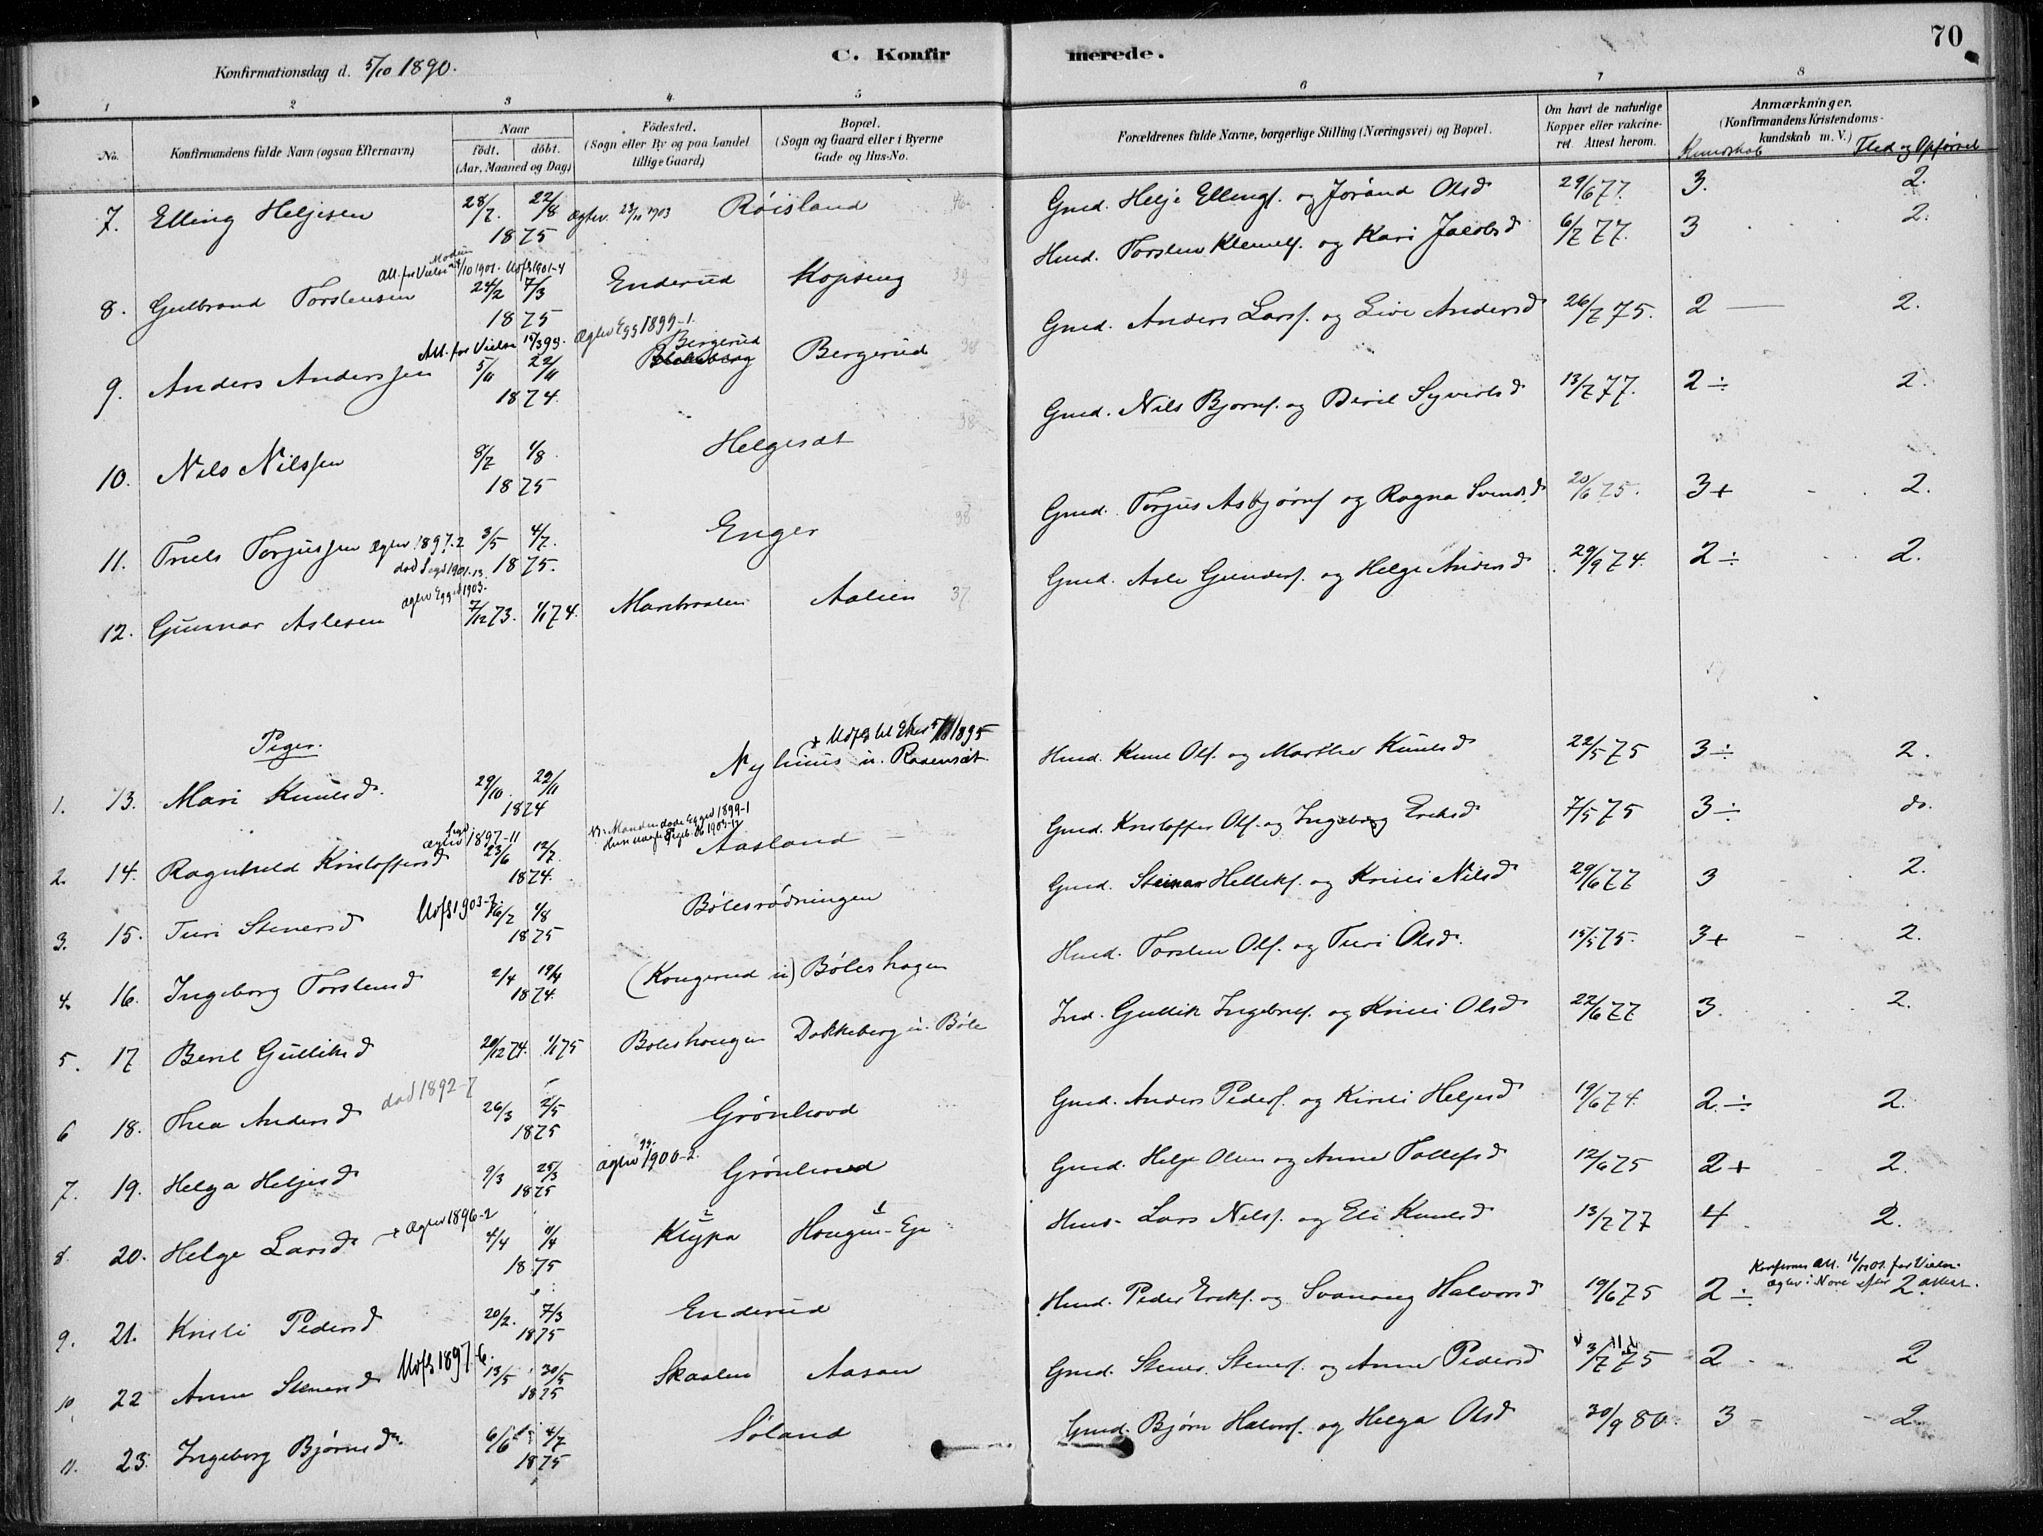 70
C. Konfirmerede.
Konfirmationsdag d. 5/10 1890.
1 2 3 4. 5 6 7 8
No. Konfirmandens fulde Navn (ogsaa Efternavn)
Naar födt. döbt. (Aar, Maaned og Dag)
Födested. (Sogn eller By og paa Landet tillige Gaard)
Bopæl. (Sogn og Gaard eller i Byerne Gade og Hus-No.
Forældrenes fulde Navne, borgerlige Stilling (Næringsvei) og Bopæl.
Om havt de naturlige Kopper eller vakcineret Attest herom.
Anmærkninger. (Konfirmandens Kristendomskundskab m. V.)
Kundskab Flid og Opførsel
7. Elling Heljesen 28/7. 22/8 1875 Ægtev. 23/11 1903 Røisland 46. Gmd. Helje Ellingf. og Jørand Olsd 29/6 77. 3. 2.
Modum
Att. for Vielse 1/10 1901. Udfl 1901-4
8. Gulbrand Torstensen 24/2 7/3 1875 Enderud Kopseng 39 Hmd. Torsten Klemetf. og Kari Jacobsd 6/7 77. 3 2.
Att. for Vielse 14/3 99. Ægtev Egg 1899-1.
9. Anders Anderssen 5/11 22/11 1874. Bergerud Bergerud 38 Gmd. Anders Larsf. og Live Andersd 26/7 75. 2 2.
10. Nils Nilssen 8/7 1/8 1875 Helgesæt 38 Gmd. Nils Bjørnf. og Beril Syvertsd 13/7 77. 2 ÷ 2.
11. Truls Torjussen Ægtev 1897.2 3/5 4/7. 1875. Enger 38 Gmd. Torjus Asbjørnf og Ragna Svendsd 20/6 75. 3+ 2.
død Sigd 1901-13.
Ægtev Egged 1903.
12. Gunnar Aslesen 7/12 73. 1/1 74. Marebraaten Aalien 37 Gmd. Asle Gundersf. og Helge Andersd 29/9 74. 2 ÷ 2.
Piger.
+ Udfl til Eker 5/11 1895
1. 13. Mari Knutsd. 29/10. 29/11 1874 Nyhuus u. Ravnsæt Hmd. Knut Olf. og Marthe Knutsd 22/5 75 3 ÷ 2.
Ægtev Sigd 1897-11 N.: Manden døde Egged 1899-1
2. 14. Ragnhild Kristoffersd 23/6 12/7. 1874. Aasland Gmd. Kristoffer Olf. og Ingeborg Eriksd 7/5 75 3 ÷ do.
3. 15. Turi Stenersd Udfl 1903-7. 16/7 1/8 1875 Bølesrødningen Gmd. Steinar Hellekf. og Kristi Nilsd 29/6 77 3 2.
4. 16. Ingeborg Torstensd 2/4 19/4 1874. (Kongerud u) Bøleshagen Hmd. Torsten Olf. og Turi Olsd. 15/5 75. 3+ 2.
5. 17 Beret Gulliksd 20/12 74. 1/1 75 Boleshougen Dokkeberg u. Bøle Ind. Gullik Ingebretf. og Kristi Olsd 22/6 77 3. 2.
6 18. Thea Andersd død 1892-7 26/3 2/5 1875 Grønhovd Gmd. Anders Pedersf. og Kirsti Heljesd 19/6 74. 2. ÷ 2.
7. 19. Helga Heljesd 9/3 28/3 1875 Ægtev 1900-2. Grønhovd Gmd. Helje Olsen og Anne Tollefsd 12/6 75 2+ 2.
8. 20. Helge Larsd + Ægtev 1896-2 4/4 11/4 1875 Klypa Hougen-Eje Hmd. Lars Nilsf. og Eli Knutsd 13/7 77 4 2.
9. 21. Kristi Pedersd 20/2. 7/3 1875 Enderud Hmd. Peder Erikf. og Svanaug Halvorsd 19/6 75 2 ÷ 2.
Konfirmas Att. 16/10 01. for Vielse. Ægtev i Nore efter attest.
10. 22 Anne Stenersd Udfl 1897 6. 13/5 30/5 1875 Skaalen Aasan Gmd. Stener Stenerf. og Anne Pedersd 3/7 75 2 2
11. 23. Ingeborg Bjørnsdr. 6/6 4/7 1875 Søland Gmd. Bjørn Halvorf. og Helga Olsd 30/9 80. 3 2.